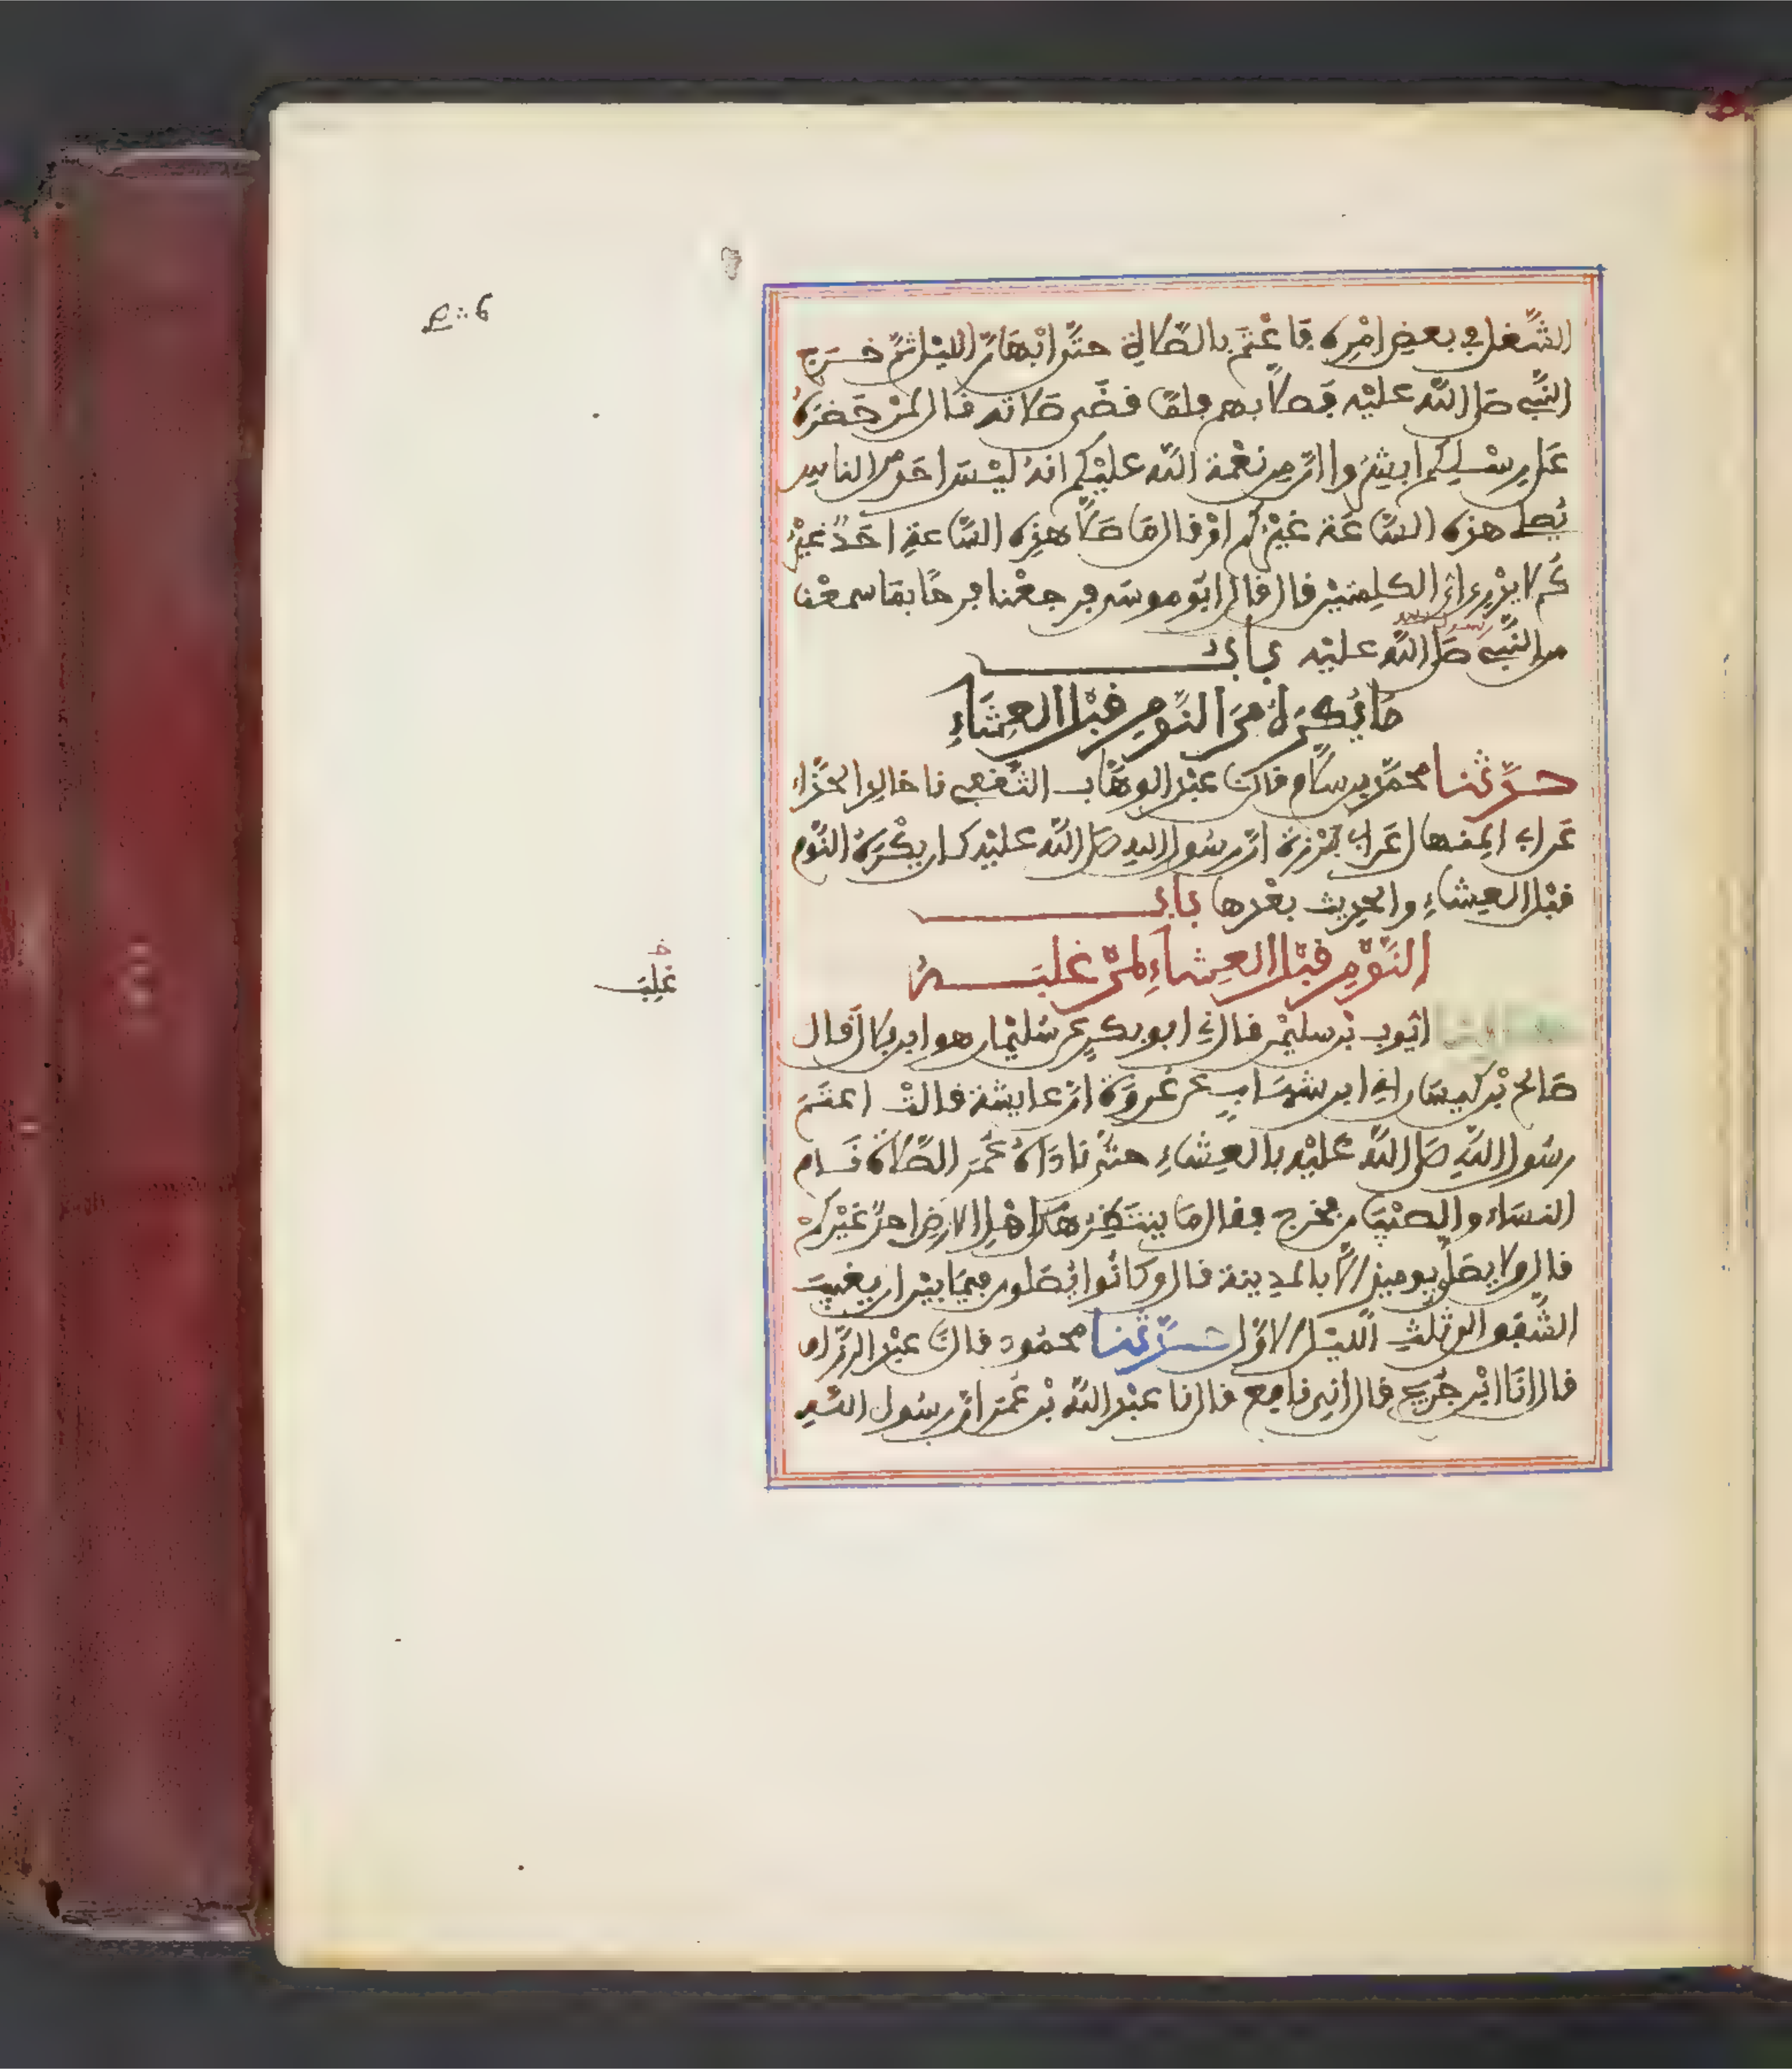 الشُّغل في بعض امْرِه فَاعْتَمَ بالصَّلاة حتَّى ابْهَارَّ الليْل ثمَّ خَرَج
النَّبي صَلى اللَّه عليْه فَصَلَّا بهم فلمّا قضَى صَلاته قال لمَنْ حَضرَهُ
عَلى رِسْلِكم ابشِرُوا انَّ مِن نعْمة اللَّه عليْكم انهُ ليْسَ احَد من الناسِ
يُصَلي هذه السَّاعَة غيْركم اوْ قال مَا صَلَّا هذِه السَّاعةِ احَدٌ غيْرُ
كُم لا يدْرِي ايَّ الكلِمتيْن قال قال ابُو موسَى فرجعْنا فرحًا بمَا سمعْنا
رسول الله
من النَّبي صَلى اللَّه عليْه بابُ
مَا يُكرَهُ مِنَ النَّوْمِ قبْل العِشَاءِ
حدَّثنا محمَّد بن سلَام قال نَا عبْد الوهَّاب الثَّقفي نا خالد الحَذَّاء
عَن ابي المِنهال عَن ابي بَرْزة انَّ رسُول اللهِ صَلى اللَّه عليْه كان يكْرَهُ النَّوْم
قبْل العِشاءِ والحدِيث بعْدها بابُ
النَّوْمِ قبْل العِشاءِ لمنْ غلبَــهُ
غُلِبَ
حدثنا ايُّوب بْن سليْمن قال ني ابو بكرٍ عن سُليْمان هو ابن بلال قال
صَالح بْن كيسَان اني ابن شهَابٍ عن عُروَة انَّ عايشة قالتْ اعتَمَ
رسُول اللَّهِ صَلى اللَّه عليْه بالعِشاءِ حتَّى نادَاهُ عُمَر الصَّلاة نَام
النسَاء والصبْيَان فخرج فقال مَا ينتَظِرُهَا مِن اهْل الارضِ احدٌ غيْركمْ
قال ولا يصَلَّى يوميذ الَّا بالمدِينة قال وكانُوا يُصَلون فيمَا بيْن ان يغيبَ
الشَّفَق الى ثلثِ الليْل الاوَّل حدَّثنا محمُود قال نَا عبْد الرزَّاق
قال انَا ابْن جُريج قال اني نافع قال نا عبْد اللَّه بْن عُمَر انَّ رسُول اللَّهِ